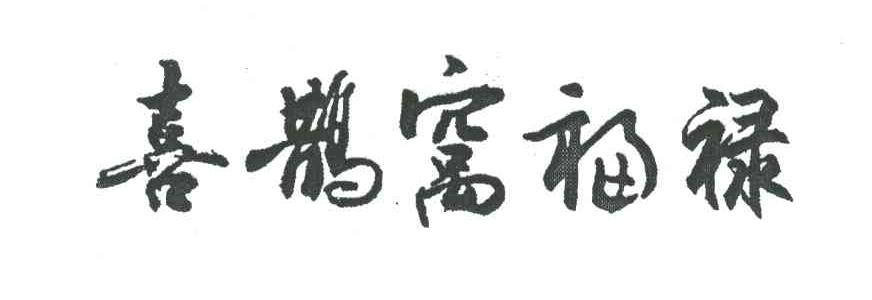 喜鹊窝福禄